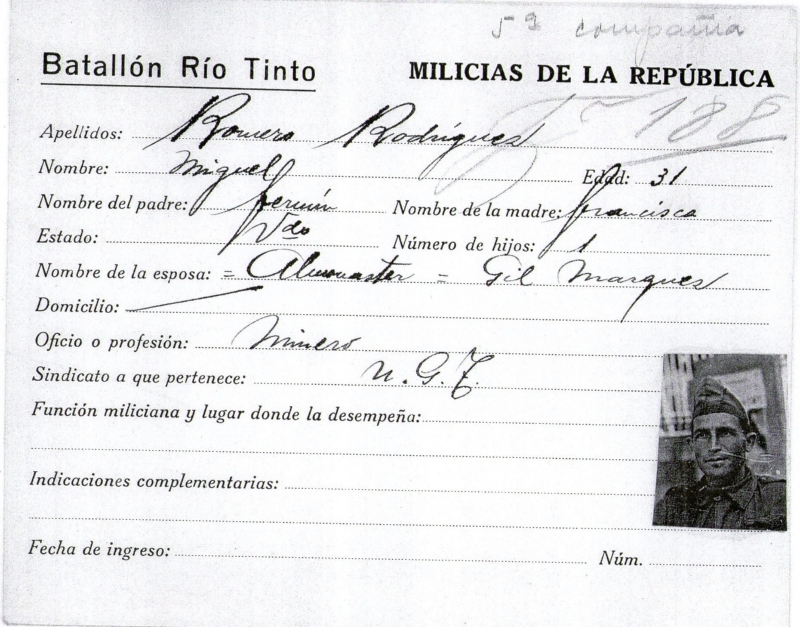 5ª compañia
Batallón Río Tinto MILICIAS DE LA REPÚBLICA
188
Apellidos: Romero Rodrígues
Nombre: Miguel Edad: 31
Nombre del padre: Fermín Nombre de la madre: Francisca
Estado: Vdo Número de hijos: 1
Nombre de la esposa: = Almonaster = Gil Marques
Domicilio:
Oficio o profesión: Minero
Sindicato a que pertenece: U.G.T.
Función miliciana y lugar donde la desempeña:
Indicaciones complementarias:
Fecha de ingreso: Núm.